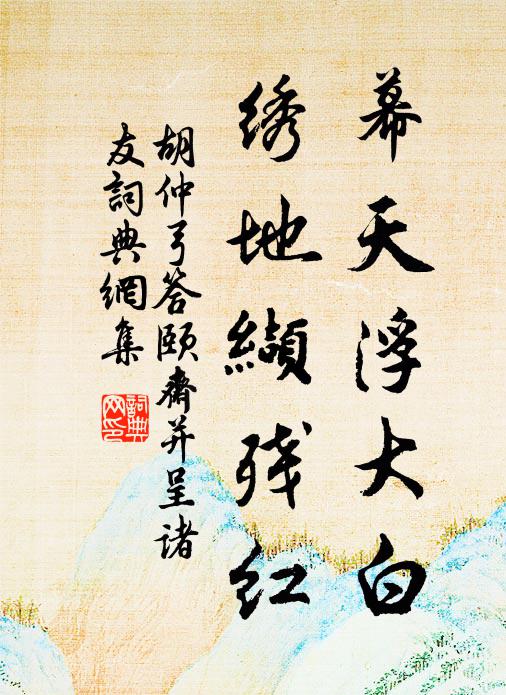 幕天浮大白
绣地缬残红
胡仲弓答颐斋并呈诸
友詞典網集
詞典
网印